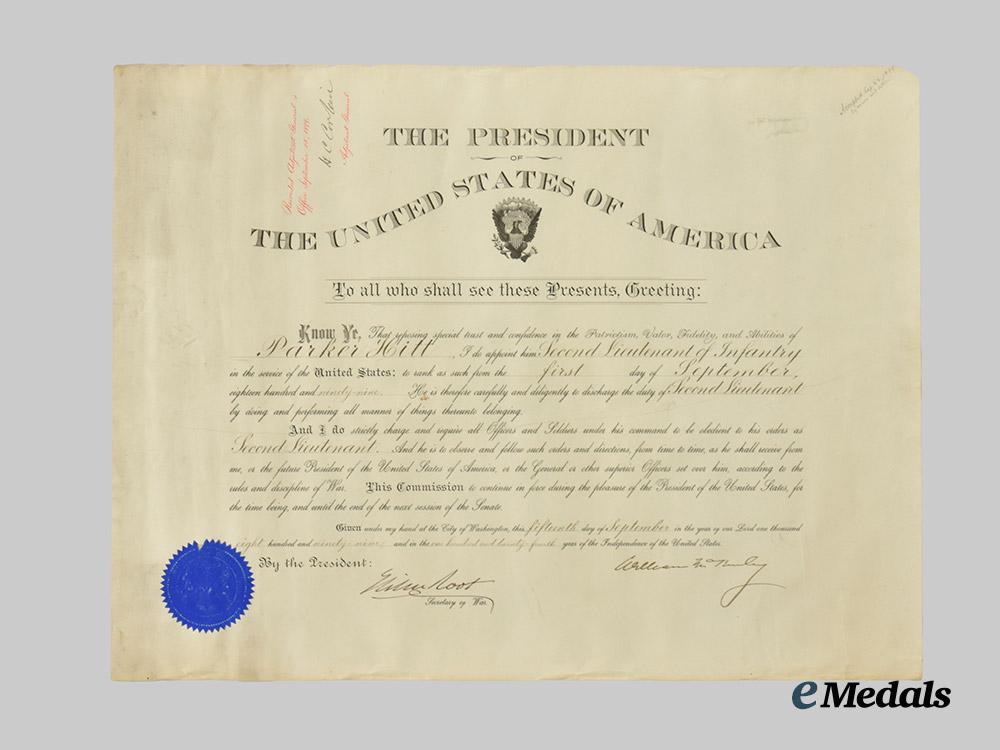 Recorded Adjutant General's
Office September 15, 1899.
H C Corbin
Adjutant General
Accepted
THE PRESIDENT
OF
THE UNITED STATES OF AMERICA
To all who shall see these Presents, Greeting:
Know Ye, That reposing special trust and confidence in the Patriotism, Valor, Fidelity, and Abilities of
Parker Hitt, I do appoint him Second Lieutenant of Infantry
in the service of the United States: to rank as such from the first day of September,
eighteen hundred and ninety-nine. He is therefore carefully and diligently to discharge the duty of Second Lieutenant
by doing and performing all manner of things thereunto belonging.
And I do strictly charge and require all Officers and Soldiers under his command to be obedient to his orders as
Second Lieutenant. And he is to observe and follow such orders and directions, from time to time, as he shall receive from
me, or the future President of the United States of America, or the General or other superior Officers set over him, according to the
rules and discipline of War. This Commission to continue in force during the pleasure of the President of the United States, for
the time being, and until the end of the next session of the Senate.
Given under my hand at the City of Washington, this fifteenth day of September in the year of our Lord one thousand
eight hundred and ninety-nine, and in the one hundred and twenty-fourth year of the Independence of the United States.
By the President:
William McKinley
Elihu Root
Secretary of War.
eMedals